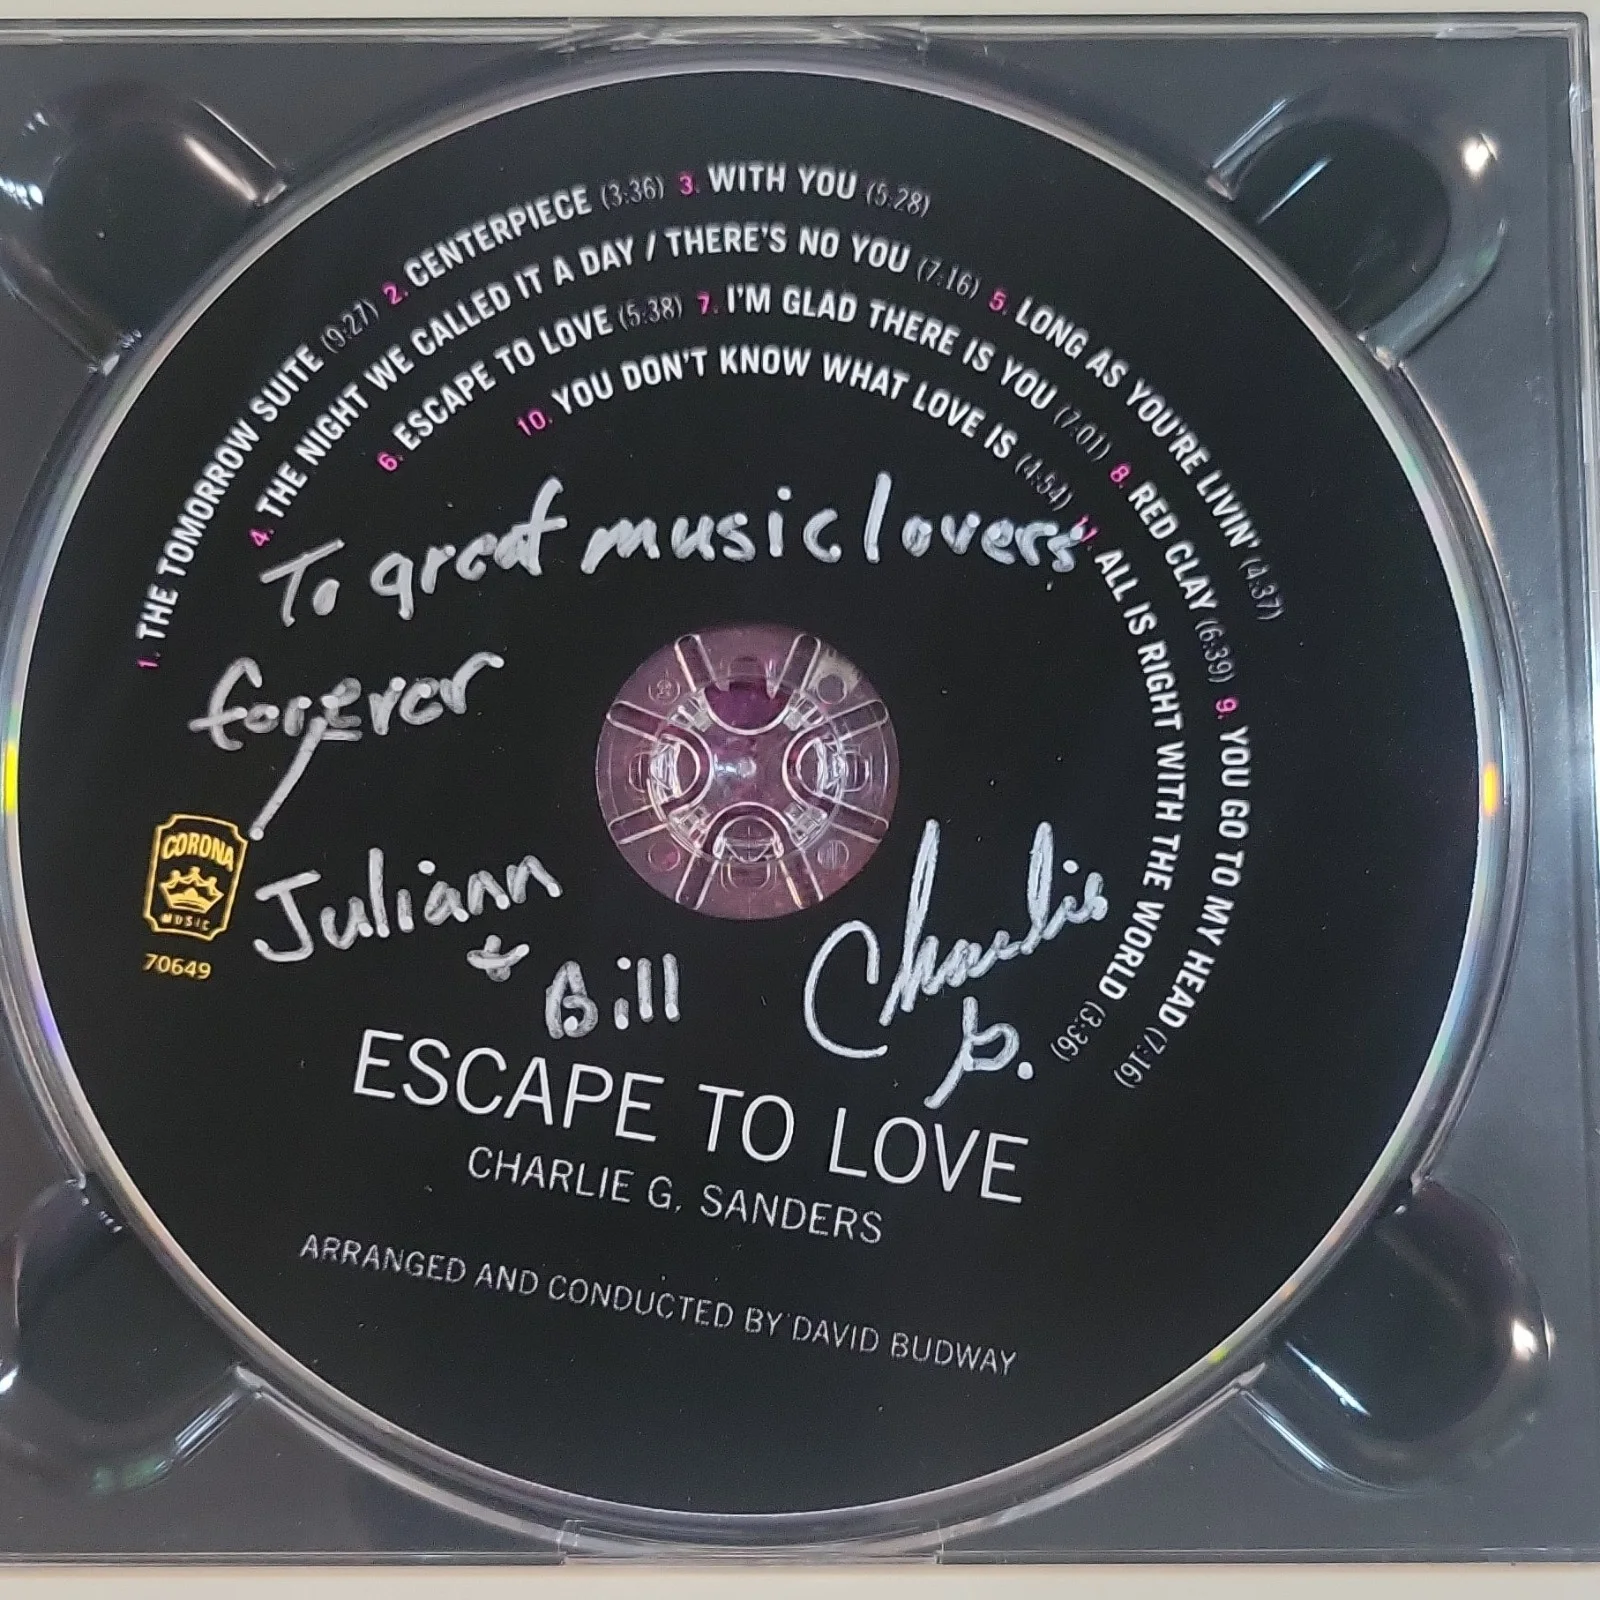 1. THE TOMORROW SUITE (9:27) 2. CENTERPIECE (3:36) 3. WITH YOU (5:28)
4. THE NIGHT WE CALLED IT A DAY / THERE'S NO YOU (7:16) 5. LONG AS YOU'RE LIVIN' (4:37)
6. ESCAPE TO LOVE (5:38) 7. I'M GLAD THERE IS YOU (7:01) 8. RED CLAY (6:39) 9. YOU GO TO MY HEAD (7:16)
10. YOU DON'T KNOW WHAT LOVE IS (4:54) 11. ALL IS RIGHT WITH THE WORLD (3:36)
To great music lovers
forever
Juliann
+
Bill
Charlie
G.
CORONA
MUSIC
70649
ESCAPE TO LOVE
CHARLIE G. SANDERS
ARRANGED AND CONDUCTED BY DAVID BUDWAY